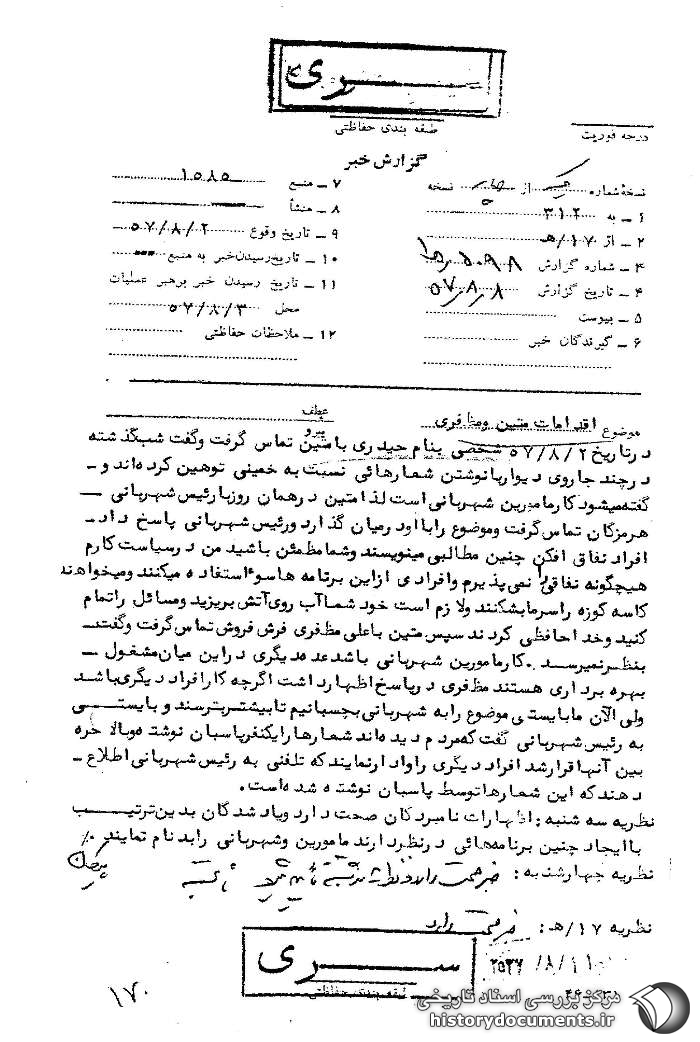 سری
طبقه بندی حفاظتی
درجه فوریت
گزارش خبر
نسخه شماره یک از چهار نسخه
۱ ـ به ۳۱۲
۲ ـ از ۱۷/هـ
۳ ـ شماره گزارش
۴ ـ تاریخ گزارش ۵۷/۸/۸
۵ ـ پیوست
۶ ـ گیرندگان خبر
۷ ـ منبع ۱۵۸۵
۸ ـ منشأ
۹ ـ تاریخ وقوع ۵۷/۸/۲
۱۰ ـ تاریخ رسیدن خبر به منبع
۱۱ ـ تاریخ رسیدن خبر برهبر عملیات
محل ۵۷/۸/۳
۱۲ ـ ملاحظات حفاظتی
موضوع اقدامات متین ومظفری
عطف
پیرو
در تاریخ ۵۷/۸/۲ شخصی بنام حیدری با متین تماس گرفت وگفت شب گذشته
در چند جا روی دیوار با نوشتن شعارهائی نسبت به خمینی توهین کرده اند و ـ
گفته میشود کار مامورین شهربانی است لذا متین در همان روز با رئیس شهربانی ـ
هرمزگان تماس گرفت وموضوع را با او در میان گذارد ورئیس شهربانی پاسخ داد ـ
افراد نفاق افکن چنین مطالبی مینویسند وشما مطمئن باشید من در سیاست کارم
هیچگونه نفاقی را نمی پذیرم وافرادی از این برنامه ها سوء استفاده میکنند ومیخواهند
کاسه کوزه را سرما بشکنند ولازم است خود شما آب روی آتش بریزید ومسائل را تمام
کنید وخداحافظی کردند سپس متین با علی مظفری فرش فروش تماس گرفت وگفت
بنظر نمیرسد کار مامورین شهربانی باشد عده دیگری در این میان مشغول ـ
بهره برداری هستند مظفری در پاسخ اظهار داشت اگرچه کار افراد دیگری باشد
ولی الان ما بایستی موضوع را به شهربانی بچسبانیم تا بیشتر بترسند و بایستی
به رئیس شهربانی گفت که مردم دیده اند شعارها را یکنفر پاسبان نوشته وبالاخره
بین آنها قرار شد افراد دیگری را وادار نمایند که تلفنی به رئیس شهربانی اطلاع ـ
دهند که این شعارها توسط پاسبان نوشته شده است.
نظریه سه شنبه : اظهارات نامبردگان صحت دارد ویاد شدگان بدین ترتیب
با ایجاد چنین برنامه هائی در نظر دارند مامورین وشهربانی را بدنام نمایند
نظریه چهارشنبه :
نظریه ۱۷/هـ :
سری
طبقه بندی حفاظتی
۲۵۳۷/۸/۱۱
۱۷۰
مرکز بررسی اسناد تاریخی
historydocuments.ir